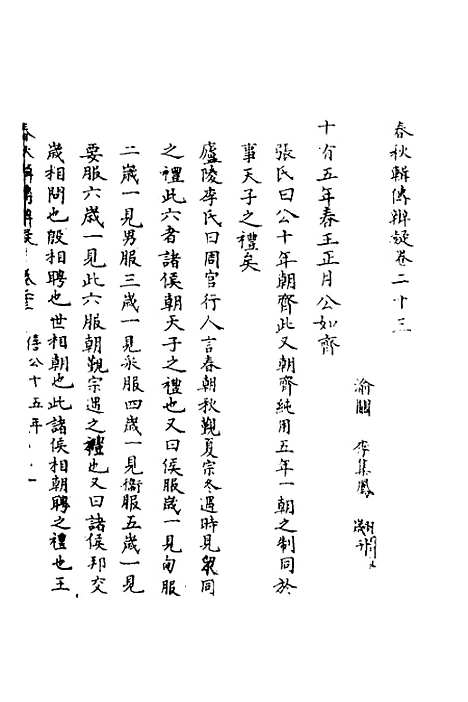 春秋輯傳辨疑卷二十三
渝關 李集鳳
十有五年春王正月公如齊
張氏曰公十年朝齊此又朝齊純用五年一朝之制同於
事天子之禮矣
廬陵李氏曰周官行人言春朝秋覲夏宗冬遇時見衆同
之禮此六者諸侯朝天子之禮也又曰侯服歲一見甸服
二歲一見男服三歲一見采服四歲一見衞服五歲一見
要服六歲一見此六服朝覲宗遇之禮也又曰諸侯邦交
歲相問也殷相聘也世相朝也此諸侯相朝聘之禮也王
春秋輯傳辨疑 卷二十三 僖公十五年 一